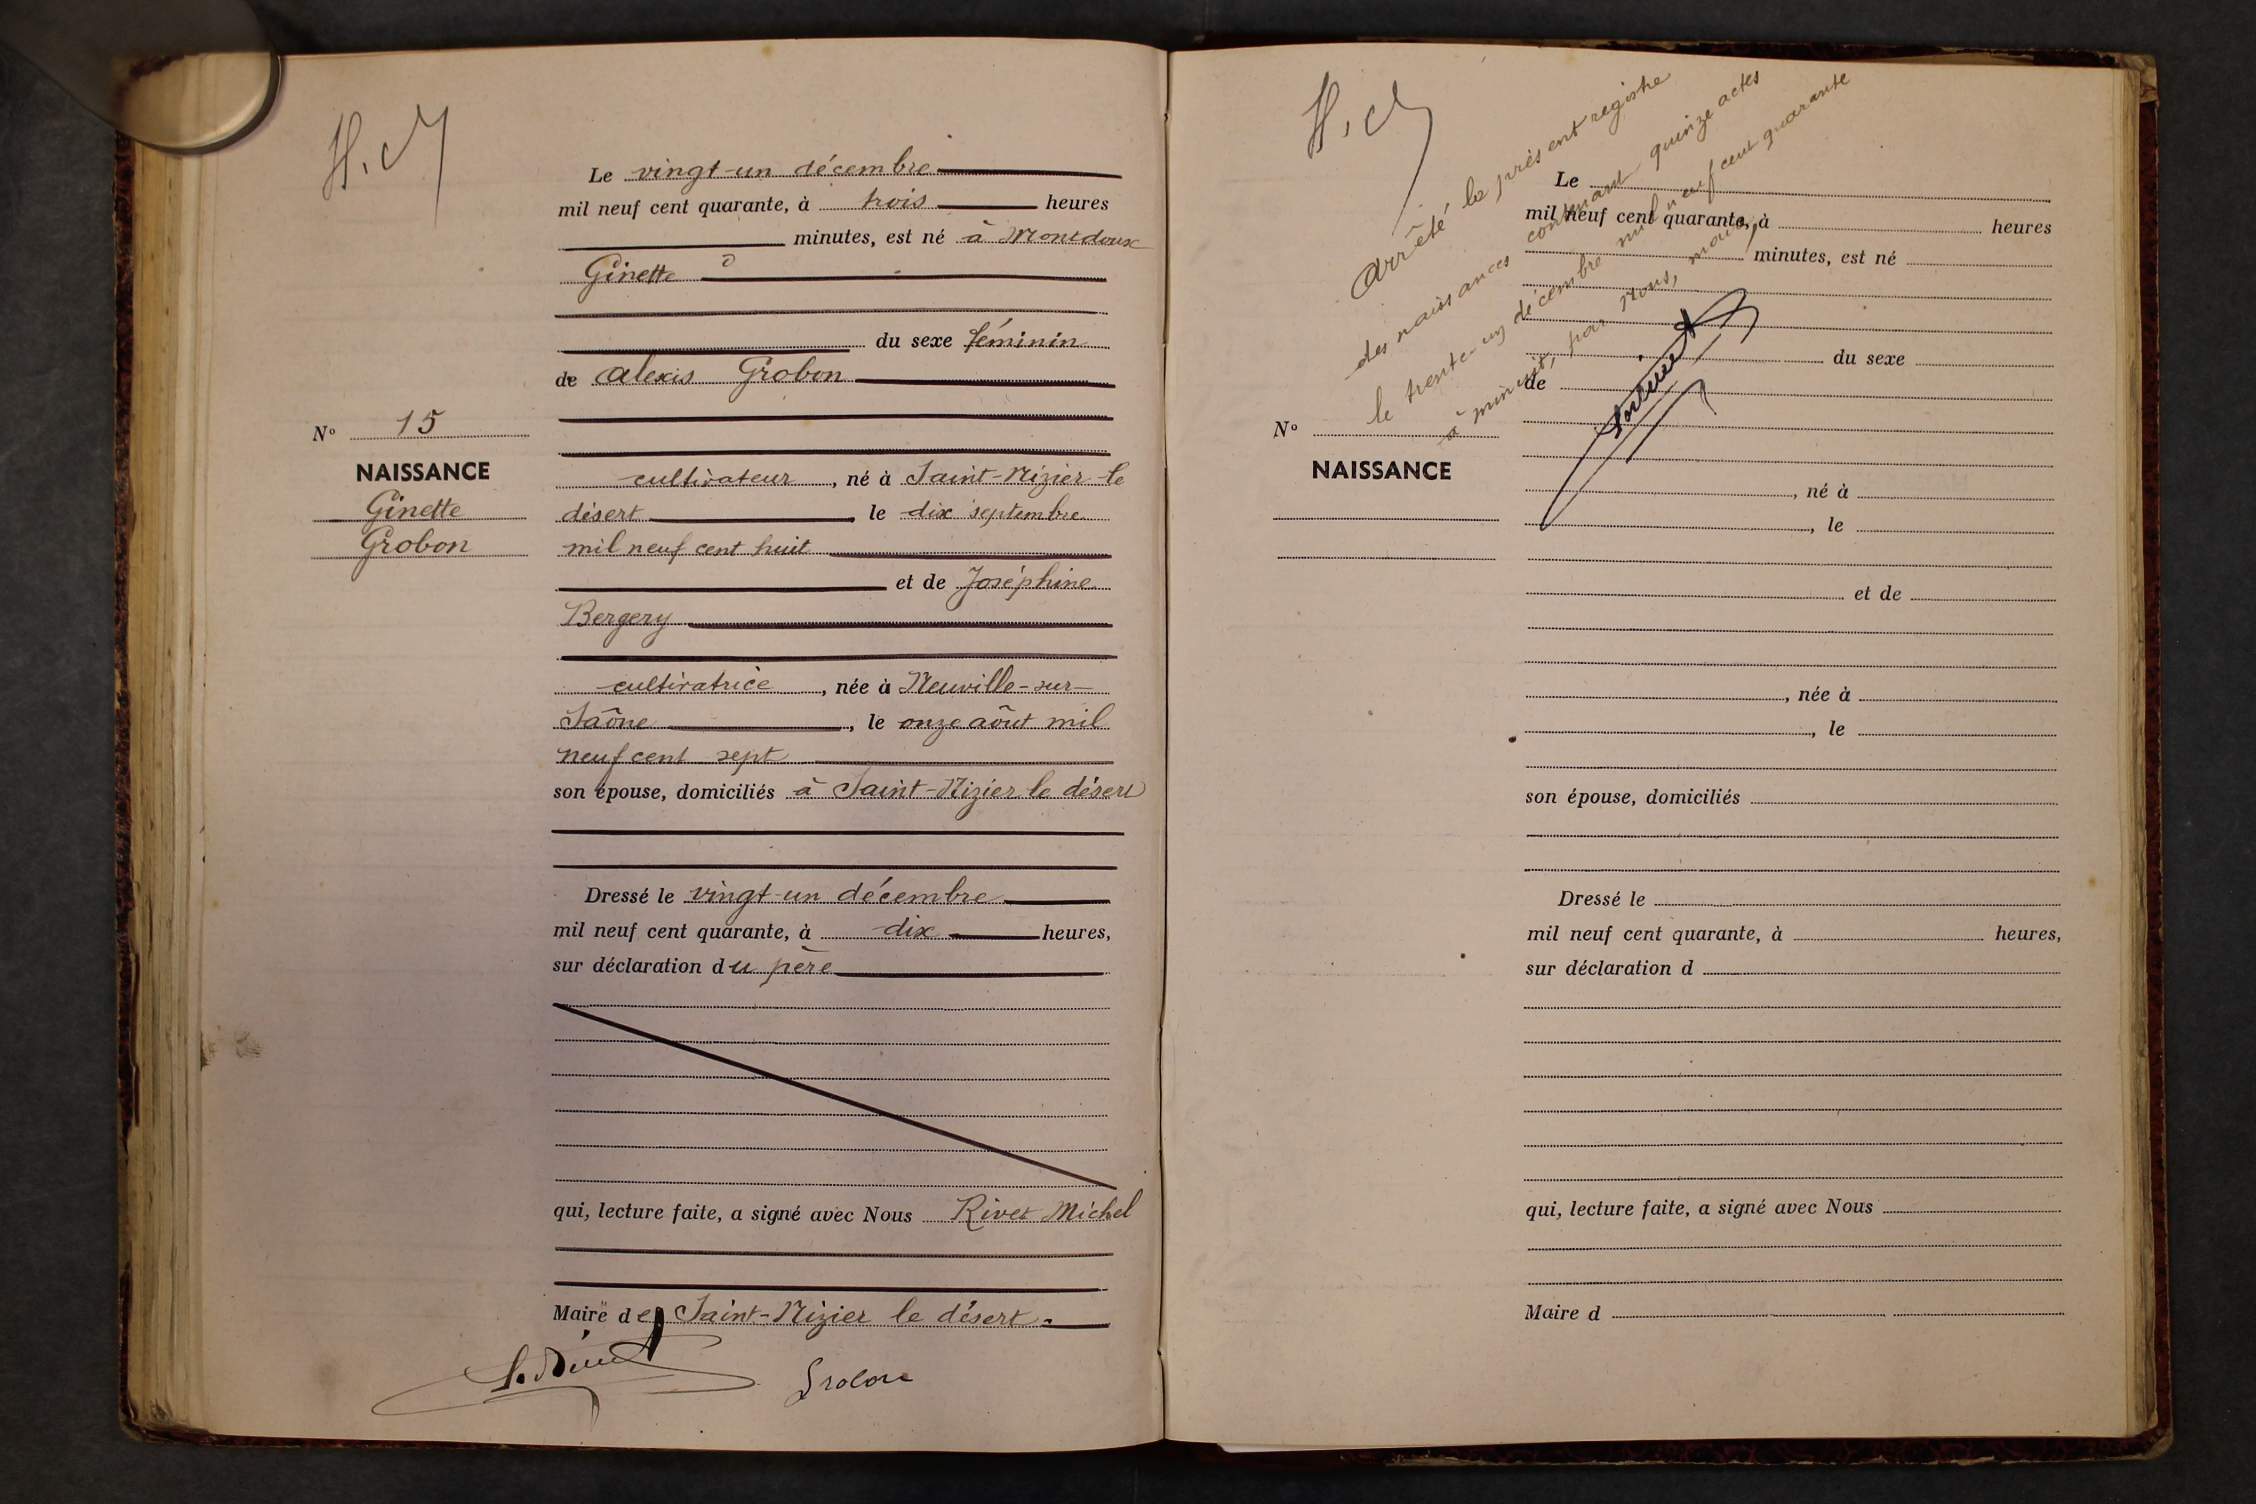 Le vingt-un décembre
mil neuf cent quarante, à trois heures
minutes, est né à Montdoux
Ginette
du sexe féminin
de Alexis Grobon
cultivateur, né à Saint-Nizier-le
désert, le dix septembre
mil neuf cent huit
et de Joséphine
Bergery
cultivatrice, née à Neuville-sur-
Saône, le onze aôut mil
neuf cent sept
son épouse, domiciliés à Saint-Nizier le désert
Dressé le vingt-un décembre
mil neuf cent quarante, à dix heures,
sur déclaration du père
qui, lecture faite, a signé avec Nous Rivet Michel
Maire de Saint-Nizier le désert.
Grobon
No 15
NAISSANCE
Ginette
Grobon
Arrêté le présent registre
des naissances contenant quinze actes
le trente-un décembre mil neuf cent quarante
à minuit, par Nous, maire,
Le
mil neuf cent quarante, à heures
minutes, est né
du sexe
de
No
NAISSANCE
, né à
, le
et de
, née à
, le
son épouse, domiciliés
Dressé le
mil neuf cent quarante, à heures,
sur déclaration d
qui, lecture faite, a signé avec Nous
Maire d